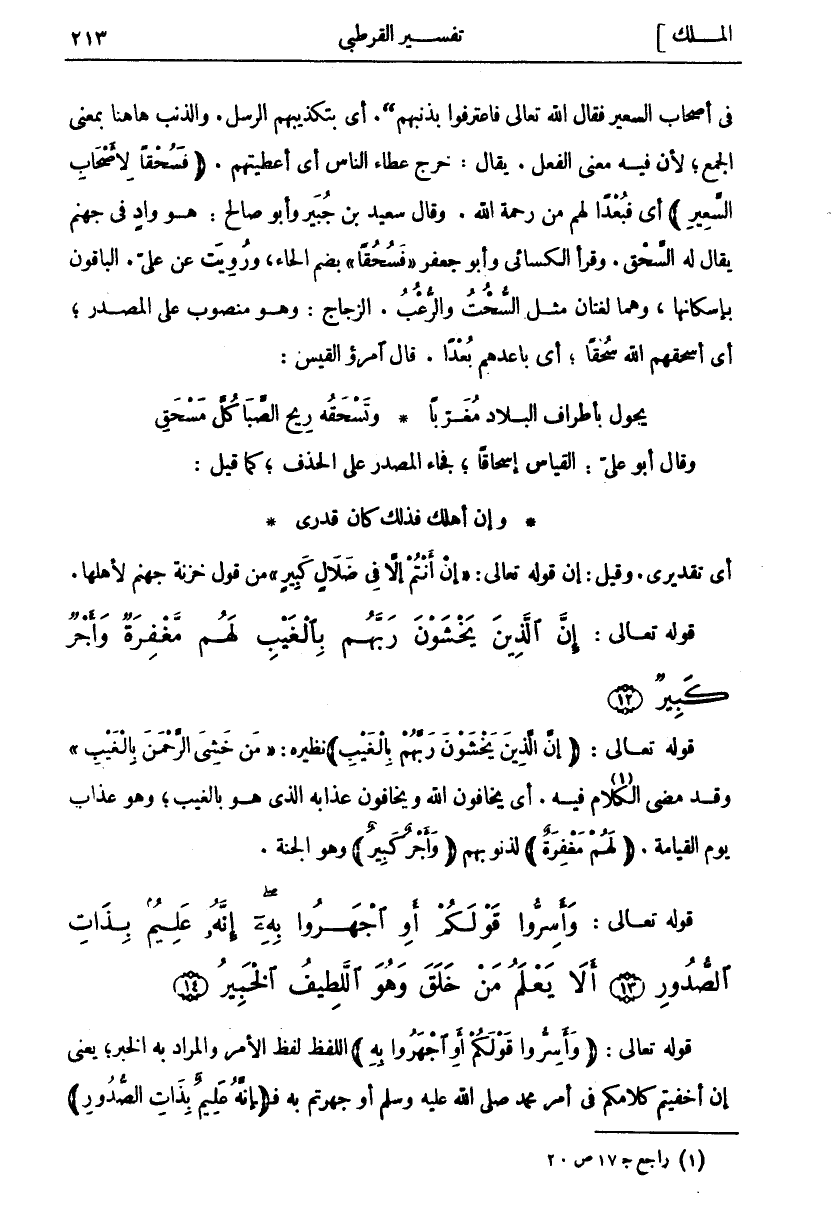 الملك] تفسير القرطبى ٢١٣
فى أصحاب السعير فقال الله تعالى فاعترفوا بذنبهم“. أى بتكذيبهم الرسل. والذنب هاهنا بمعنى
الجمع؛ لأن فيه معنى الفعل. يقال: خرج عطاء الناس أى أعطيتهم. ﴿فَسُحْقًا لِأَصْحَابِ
السَّعِيرِ﴾ أى فَبُعْدًا لهم من رحمة الله. وقال سعيد بن جُبَير وأبو صالح: هو وادٍ فى جهنم
يقال له السُّحْق. وقرأ الكسائى وأبو جعفر «فَسُحُقًا» بضم الحاء، ورُوِيَت عن علىّ. الباقون
بإسكانها، وهما لغتان مثل السُّحْتُ والرُّعْبُ. الزجاج: وهو منصوب على المصدر؛
أى أسحقهم الله سُحْقًا؛ أى باعدهم بُعْدًا. قال آمرؤ القيس:
يجول بأطراف البلاد مُغَرّبًا * وتَسْحَقُه رِيح الصَّبَا كُلَّ مَسْحَقِ
وقال أبو علىّ: القياس إسحاقًا؛ فجاء المصدر على الحذف؛ كما قيل:
* وإن أهلك فذلك كان قدرى *
أى تقديرى. وقيل: إن قوله تعالى: «إنْ أَنْتُمْ إلَّا فِى ضَلَالٍ كَبِيرٍ» من قول خزنة جهنم لأهلها.
قوله تعالى: إِنَّ ٱلَّذِينَ يَخْشَوْنَ رَبَّهُم بِٱلْغَيْبِ لَهُم مَّغْفِرَةٌ وَأَجْرٌ
كَبِيرٌ ⟨١٢⟩
قوله تعالى: ﴿إنَّ الَّذِينَ يَخْشَوْنَ رَبَّهُمْ بِالْغَيْبِ﴾ نظيره: «مَن خَشِىَ الرَّحْمَنَ بِالْغَيْبِ»
وقد مضى الكلام (١) فيه. أى يخافون الله ويخافون عذابه الذى هو بالغيب؛ وهو عذاب
يوم القيامة. ﴿لَهُمْ مَغْفِرَةٌ﴾ لذنوبهم ﴿وَأَجْرٌ كَبِيرٌ﴾ وهو الجنة.
قوله تعالى: وَأَسِرُّوا قَوْلَكُمْ أَوِ ٱجْهَرُوا بِهِۦٓۖ إِنَّهُۥ عَلِيمُۢ بِذَاتِ
ٱلصُّدُورِ ⟨١٣⟩ أَلَا يَعْلَمُ مَنْ خَلَقَ وَهُوَ ٱللَّطِيفُ ٱلْخَبِيرُ ⟨١٤⟩
قوله تعالى: ﴿وَأَسِرُّوا قَوْلَكُمْ أَوِ ٱجْهَرُوا بِهِ﴾ اللفظ لفظ الأمر والمراد به الخبر؛ يعنى
إن أخفيتم كلامكم فى أمر محمد صلى الله عليه وسلم أو جهرتم به فـ﴿إنَّهُ عَلِيمٌ بِذَاتِ الصُّدُورِ﴾
(١) راجع جـ ١٧ ص ٢٠